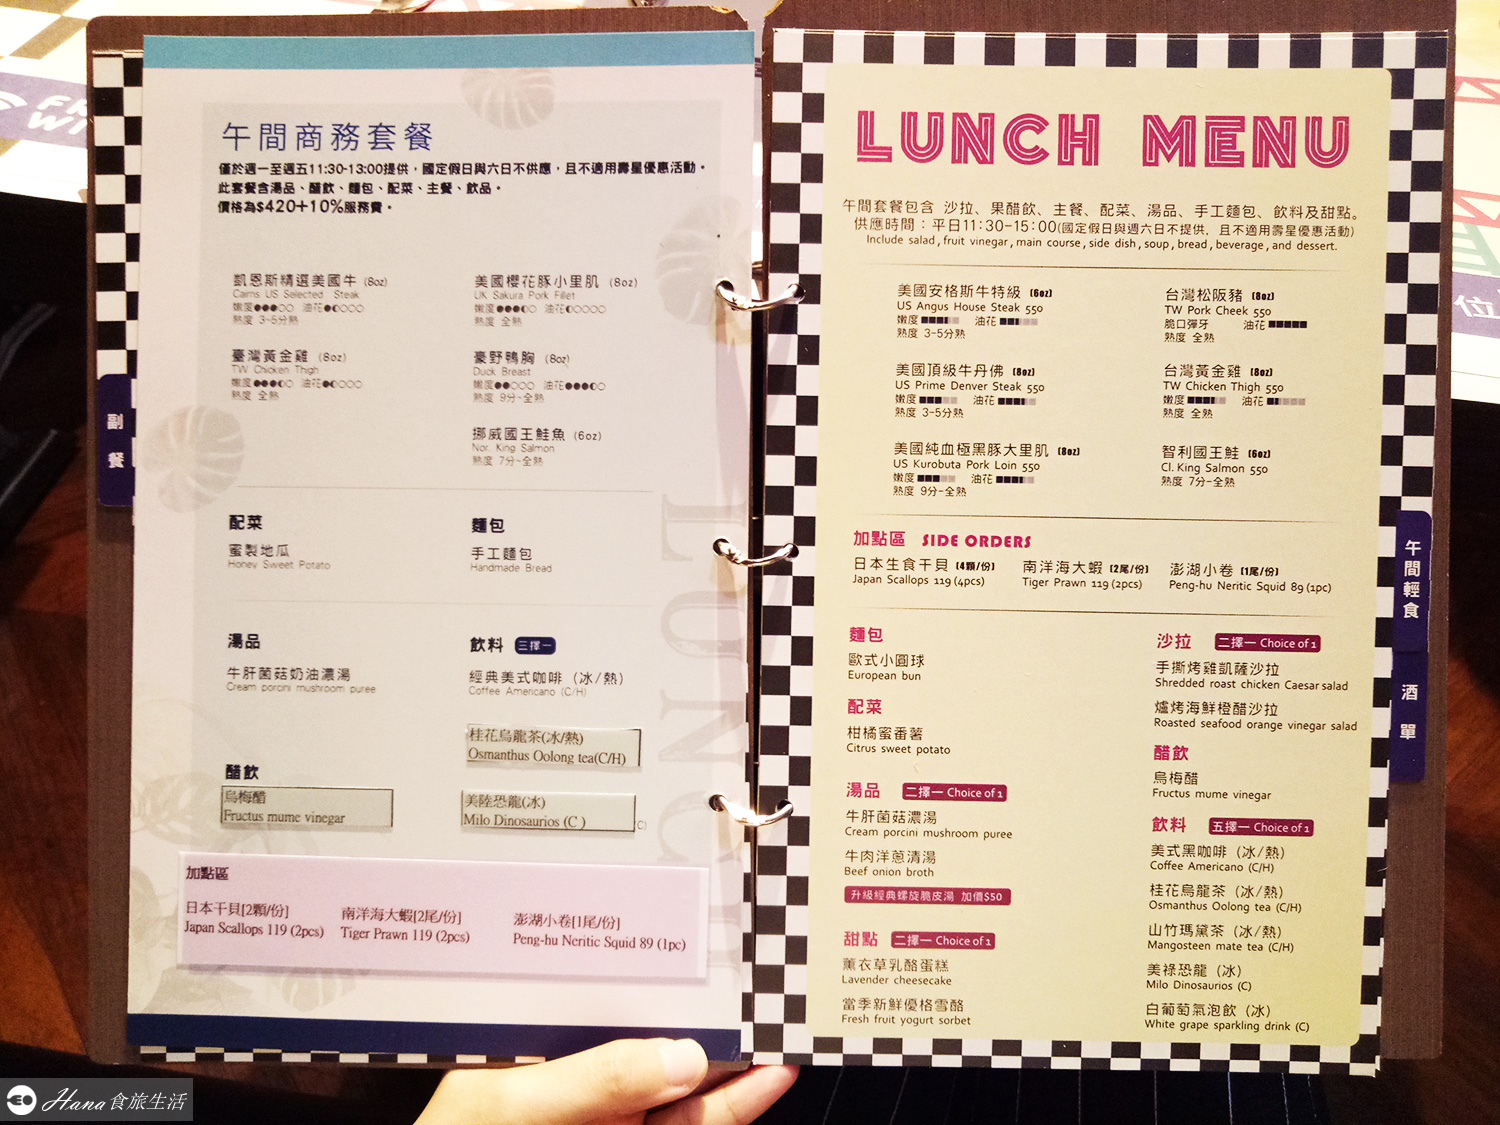 午間商務套餐
僅於週一至週五11:30-13:00提供，國定假日與六日不供應，且不適用壽星優惠活動。
此套餐含湯品、醋飲、麵包、配菜、主餐、飲品。
價格為$420+10%服務費。
凱恩斯精選美國牛 (8oz)
Cairns US Selected Steak
嫩度●●●○○ 油花●◐○○○
熟度 3-5分熟
臺灣黃金雞 (8oz)
TW Chicken Thigh
嫩度●●●◐○ 油花●◐○○○
熟度 全熟
美國櫻花豚小里肌 (8oz)
UK Sakura Pork Fillet
嫩度●●●◐○ 油花◐○○○○
熟度 全熟
豪野鴨胸 (8oz)
Duck Breast
嫩度●●○○○ 油花●●●◐○
熟度 9分~全熟
挪威國王鮭魚 (6oz)
Nor. King Salmon
熟度 7分~全熟
配菜
蜜製地瓜
Honey Sweet Potato
麵包
手工麵包
Handmade Bread
湯品
牛肝菌菇奶油濃湯
Cream porcini mushroom puree
飲料 三擇一
經典美式咖啡（冰/熱）
Coffee Americano (C/H)
桂花烏龍茶(冰/熱)
Osmanthus Oolong tea(C/H)
美陸恐龍(冰)
Milo Dinosaurios (C )
C)
醋飲
烏梅醋
Fructus mume vinegar
加點區
日本干貝[2顆/份]
Japan Scallops 119 (2pcs)
南洋海大蝦[2尾/份]
Tiger Prawn 119 (2pcs)
澎湖小卷[1尾/份]
Peng-hu Neritic Squid 89 (1pc)
LUNCH
副餐
LUNCH MENU
午間套餐包含 沙拉、果醋飲、主餐、配菜、湯品、手工麵包、飲料及甜點。
供應時間：平日11:30-15:00(國定假日與週六日不提供，且不適用壽星優惠活動)
Include salad, fruit vinegar, main course, side dish, soup, bread, beverage, and dessert.
美國安格斯牛特級 (6oz)
US Angus House Steak 550
嫩度 油花
熟度 3-5分熟
美國頂級牛丹佛 (8oz)
US Prime Denver Steak 550
嫩度 油花
熟度 3-5分熟
美國純血極黑豚大里肌 (8oz)
US Kurobuta Pork Loin 550
嫩度 油花
熟度 9分-全熟
台灣松阪豬 (8oz)
TW Pork Cheek 550
脆口彈牙 油花
熟度 全熟
台灣黃金雞 (8oz)
TW Chicken Thigh 550
嫩度 油花
熟度 全熟
智利國王鮭 (6oz)
Cl. King Salmon 550
熟度 7分-全熟
加點區 SIDE ORDERS
日本生食干貝 (4顆/份)
Japan Scallops 119 (4pcs)
南洋海大蝦 (2尾/份)
Tiger Prawn 119 (2pcs)
澎湖小卷 (1尾/份)
Peng-hu Neritic Squid 89 (1pc)
麵包
歐式小圓球
European bun
配菜
柑橘蜜番薯
Citrus sweet potato
湯品 二擇一 Choice of 1
牛肝菌菇濃湯
Cream porcini mushroom puree
牛肉洋蔥清湯
Beef onion broth
升級經典螺旋脆皮湯 加價$50
甜點 二擇一 Choice of 1
薰衣草乳酪蛋糕
Lavender cheesecake
當季新鮮優格雪酪
Fresh fruit yogurt sorbet
沙拉 二擇一 Choice of 1
手撕烤雞凱薩沙拉
Shredded roast chicken Caesar salad
爐烤海鮮橙醋沙拉
Roasted seafood orange vinegar salad
醋飲
烏梅醋
Fructus mume vinegar
飲料 五擇一 Choice of 1
美式黑咖啡（冰/熱）
Coffee Americano (C/H)
桂花烏龍茶（冰/熱）
Osmanthus Oolong tea (C/H)
山竹瑪黛茶（冰/熱）
Mangosteen mate tea (C/H)
美祿恐龍（冰）
Milo Dinosaurios (C)
白葡萄氣泡飲（冰）
White grape sparkling drink (C)
午間輕食
酒單
位
Hana 食旅生活